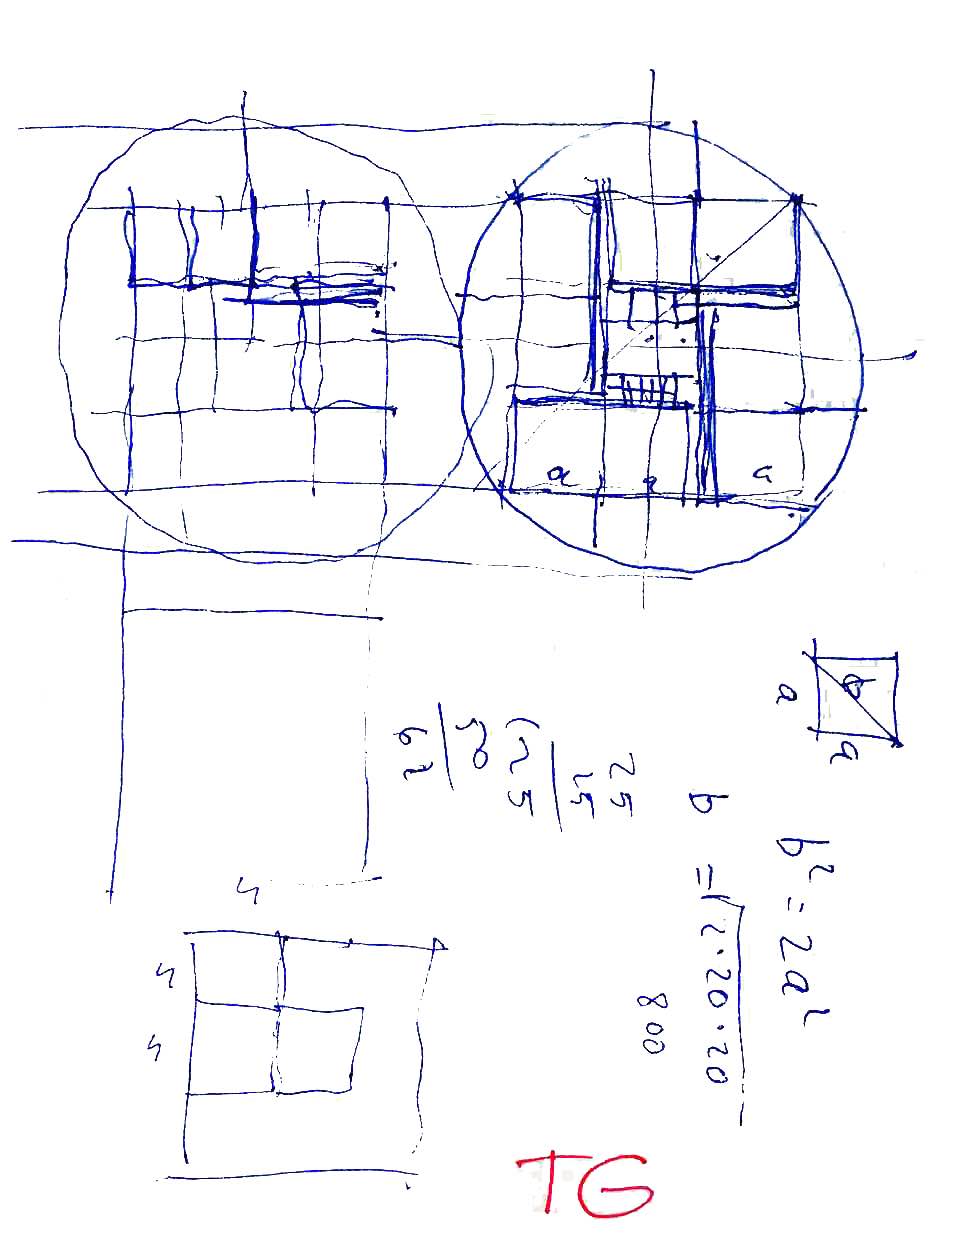 a a a
b
a
a
b² = 2a²
b = √2·20·20
800
25
25
625
50
62
4
4
4
TG